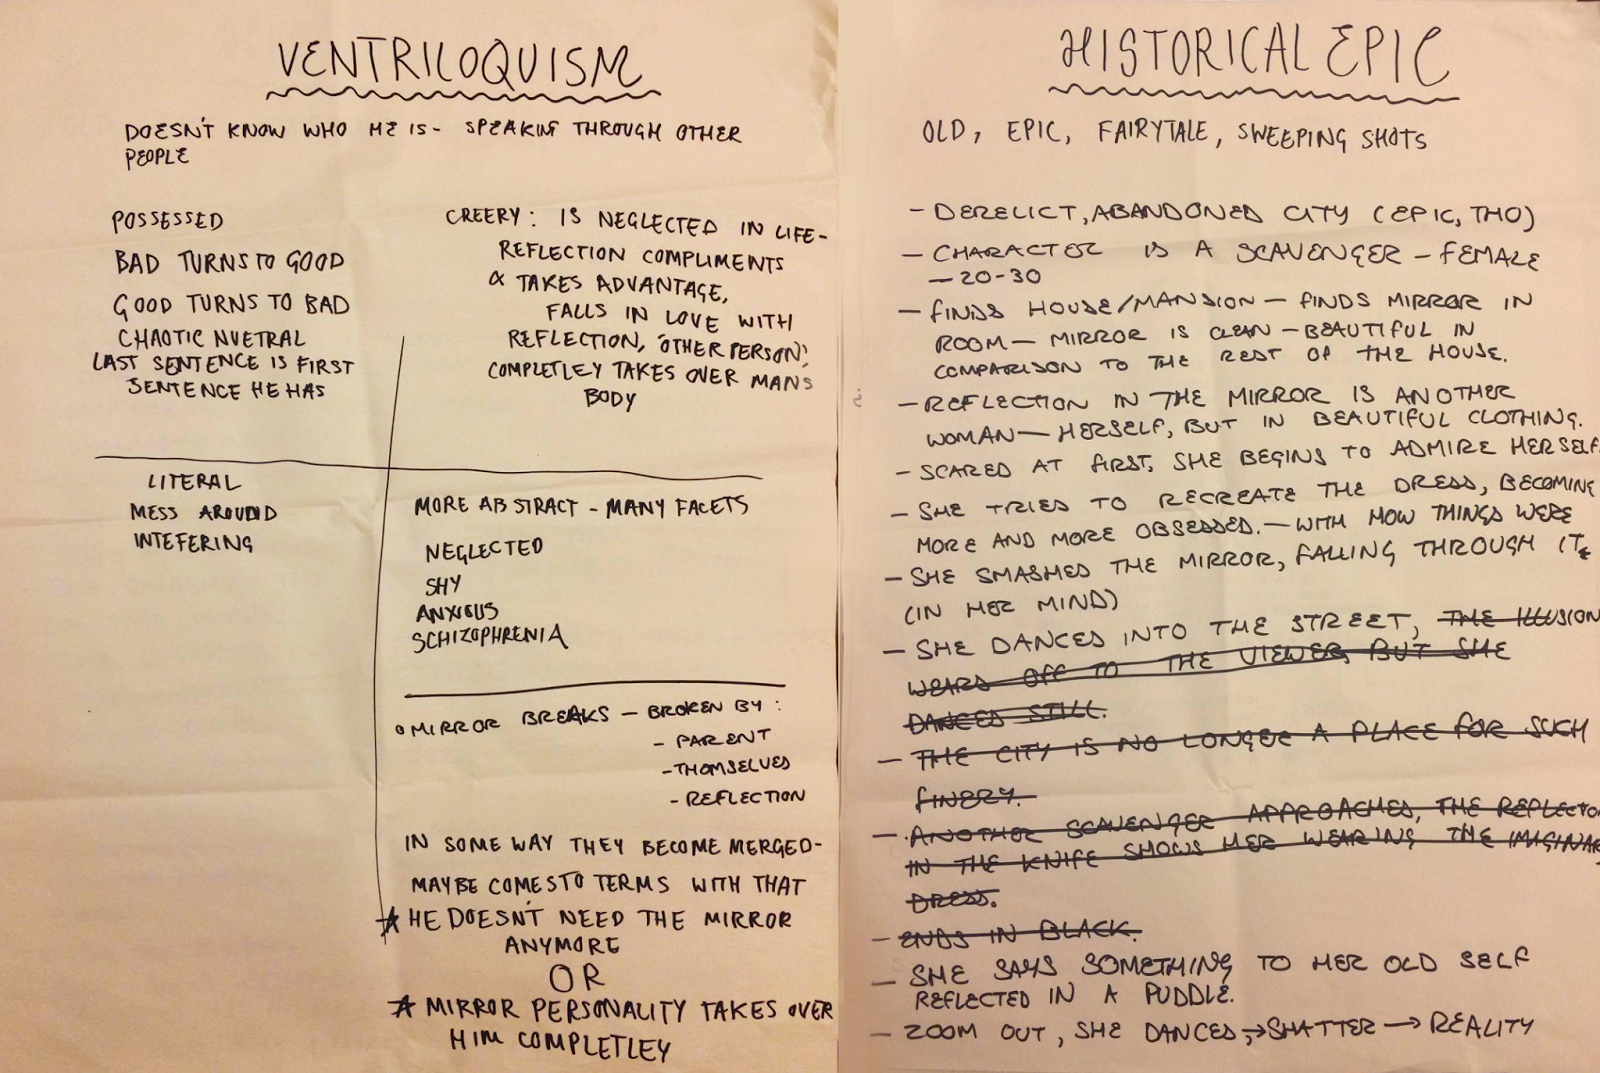 VENTRILOQUISM
DOESN'T KNOW WHO HE IS- SPEAKING THROUGH OTHER
PEOPLE
POSSESSED
BAD TURNS TO GOOD
GOOD TURNS TO BAD
CHAOTIC NUETRAL
LAST SENTENCE IS FIRST
SENTENCE HE HAS
CREEPY: IS NEGLECTED IN LIFE-
REFLECTION COMPLIMENTS
& TAKES ADVANTAGE,
FALLS IN LOVE WITH
REFLECTION, 'OTHER PERSON',
COMPLETLEY TAKES OVER MANS
BODY
LITERAL
MESS AROUND
INTEFERING
MORE ABSTRACT - MANY FACETS
NEGLECTED
SHY
ANXIOUS
SCHIZOPHRENIA
MIRROR BREAKS - BROKEN BY:
- PARENT
- THEMSELVES
- REFLECTION
IN SOME WAY THEY BECOME MERGED-
MAYBE COMES TO TERMS WITH THAT
HE DOESN'T NEED THE MIRROR
ANYMORE
OR
MIRROR PERSONALITY TAKES OVER
HIM COMPLETLEY
HISTORICAL EPIC
OLD, EPIC, FAIRYTALE, SWEEPING SHOTS
- DERELICT, ABANDONED CITY (EPIC, THO)
- CHARACTER IS A SCAVENGER - FEMALE
- 20-30
- FINDS HOUSE/MANSION - FINDS MIRROR IN
ROOM - MIRROR IS CLEAN - BEAUTIFUL IN
COMPARISON TO THE REST OF THE HOUSE.
- REFLECTION IN THE MIRROR IS ANOTHER
WOMAN - HERSELF, BUT IN BEAUTIFUL CLOTHING.
- SCARED AT FIRST, SHE BEGINS TO ADMIRE HERSELF.
- SHE TRIES TO RECREATE THE DRESS, BECOMING
MORE AND MORE OBSESSED. - WITH HOW THINGS WERE
- SHE SMASHES THE MIRROR, FALLING THROUGH IT
(IN HER MIND)
- SHE DANCES INTO THE STREET, THE ILLUSION
WEARS OFF TO THE VIEWER, BUT SHE
DANCES STILL.
- THE CITY IS NO LONGER A PLACE FOR SUCH
FINERY.
- ANOTHER SCAVENGER APPROACHES, THE REFLECTO
IN THE KNIFE SHOWS HER WEARING THE IMAGINA
DRESS.
- ENDS IN BLACK.
- SHE SAYS SOMETHING TO HER OLD SELF
REFLECTED IN A PUDDLE.
- ZOOM OUT, SHE DANCES, → SHATTER → REALITY